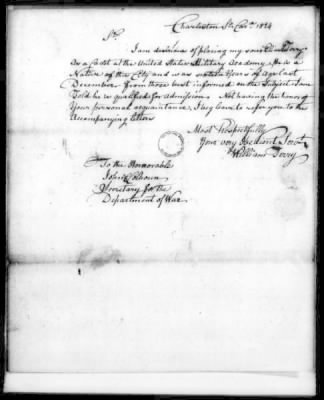 Charleston So. Car. 1824
Sir,
I am desirous of placing my son Terry
as a Cadet at the United States Military Academy. He is a
Native of this City and was sixteen Years of Age last
December. From those best informed on the Subject I am
told he is qualified for admission. Not having the honor of
Your personal acquaintance, I beg leave to refer you to the
Accompanying letters
Most Respectfully
Your very Obedient Servt.
William Terry
To the Honorable
John C Calhoun
Secretary for the
Department of War